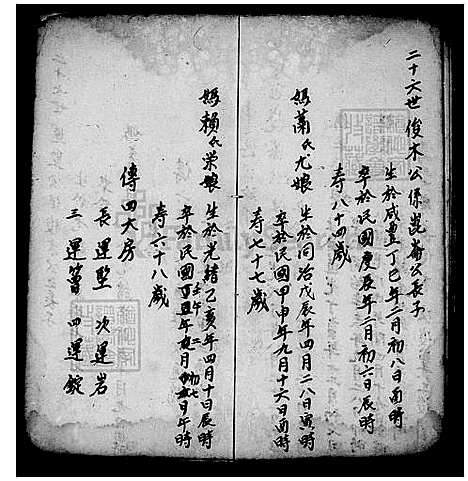 二十六世 俊木公係崑崙公長子
生於咸豊丁巳年二月初八日酉時
卒於民國庚辰年二月初六日辰時
寿八十四歲
媽蕭氏尤娘
生於同治戊辰年四月二八日寅時
卒於民國甲申年九月十六日酉時
寿七十七歲
媽賴氏栄娘
生於光緒乙亥年四月十日辰時
卒於民國壬午年二月初七日午時
寿六十八歲
傳四大房
長運墅 次運岩
三運籌 四運錠